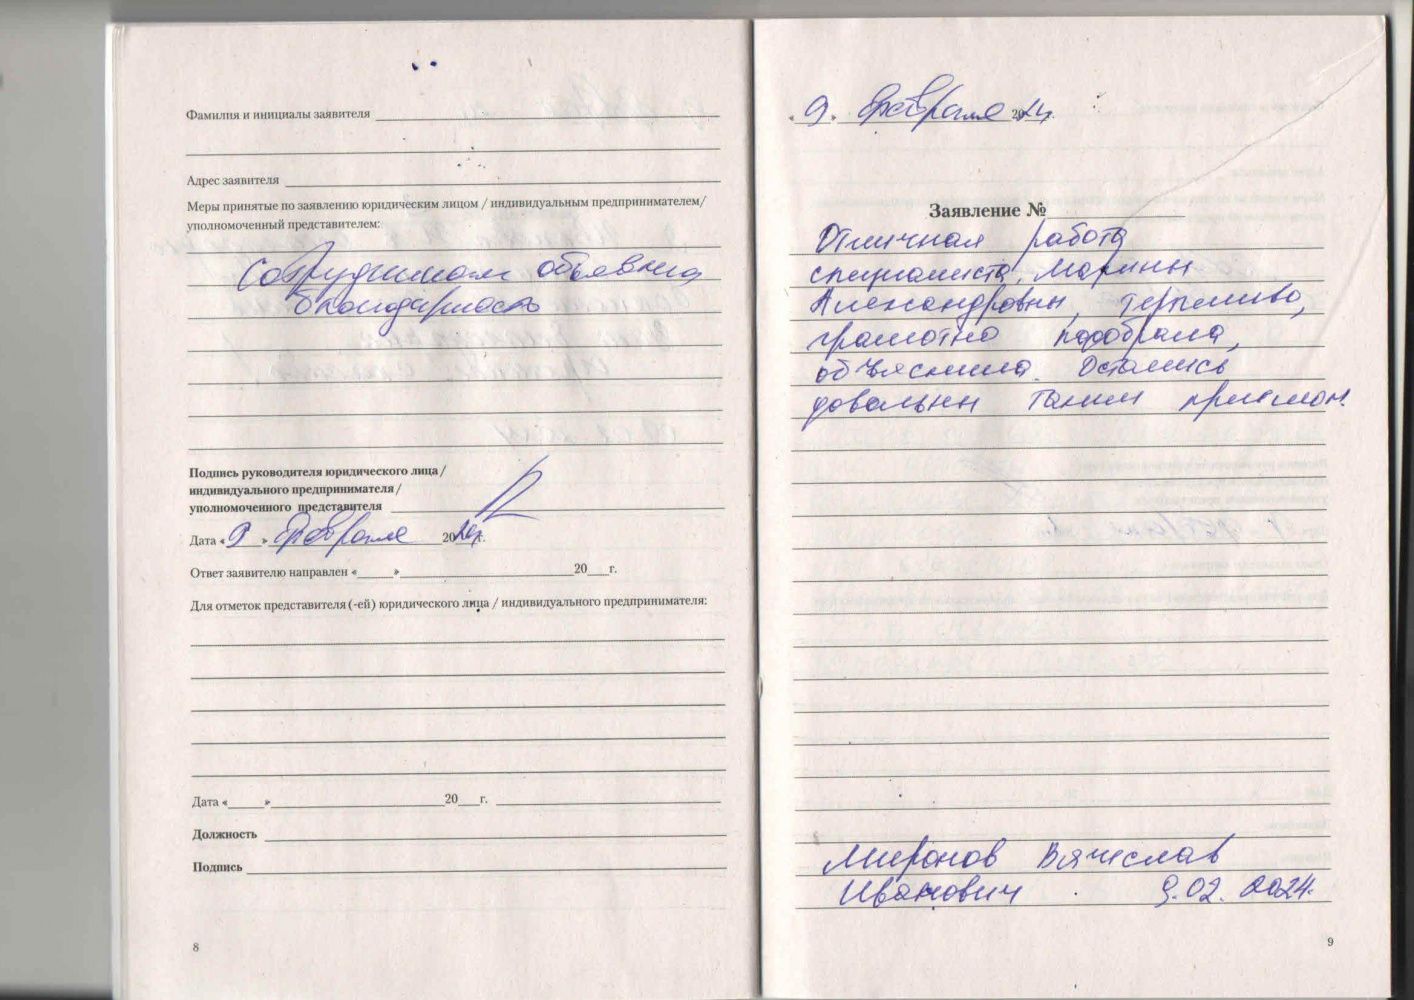 Фамилия и инициалы заявителя
Адрес заявителя
Меры принятые по заявлению юридическим лицом / индивидуальным предпринимателем/
уполномоченный представителем:
Сотрудникам объявлена
благодарность
Подпись руководителя юридического лица/
индивидуального предпринимателя/
уполномоченного представителя
Дата «9» февраля 2024г.
Ответ заявителю направлен « » 20 г.
Для отметок представителя (-ей) юридического лица / индивидуального предпринимателя:
Дата « » 20 г.
Должность
Подпись
8
«9» февраля 2024г.
Заявление №
Отличная работа
специалиста, Марины
Александровны, терпеливо,
грамотно подобрала,
объяснила. Остались
довольны таким приемом.
Миронов Вячеслав
Иванович 9.02.2024.
9